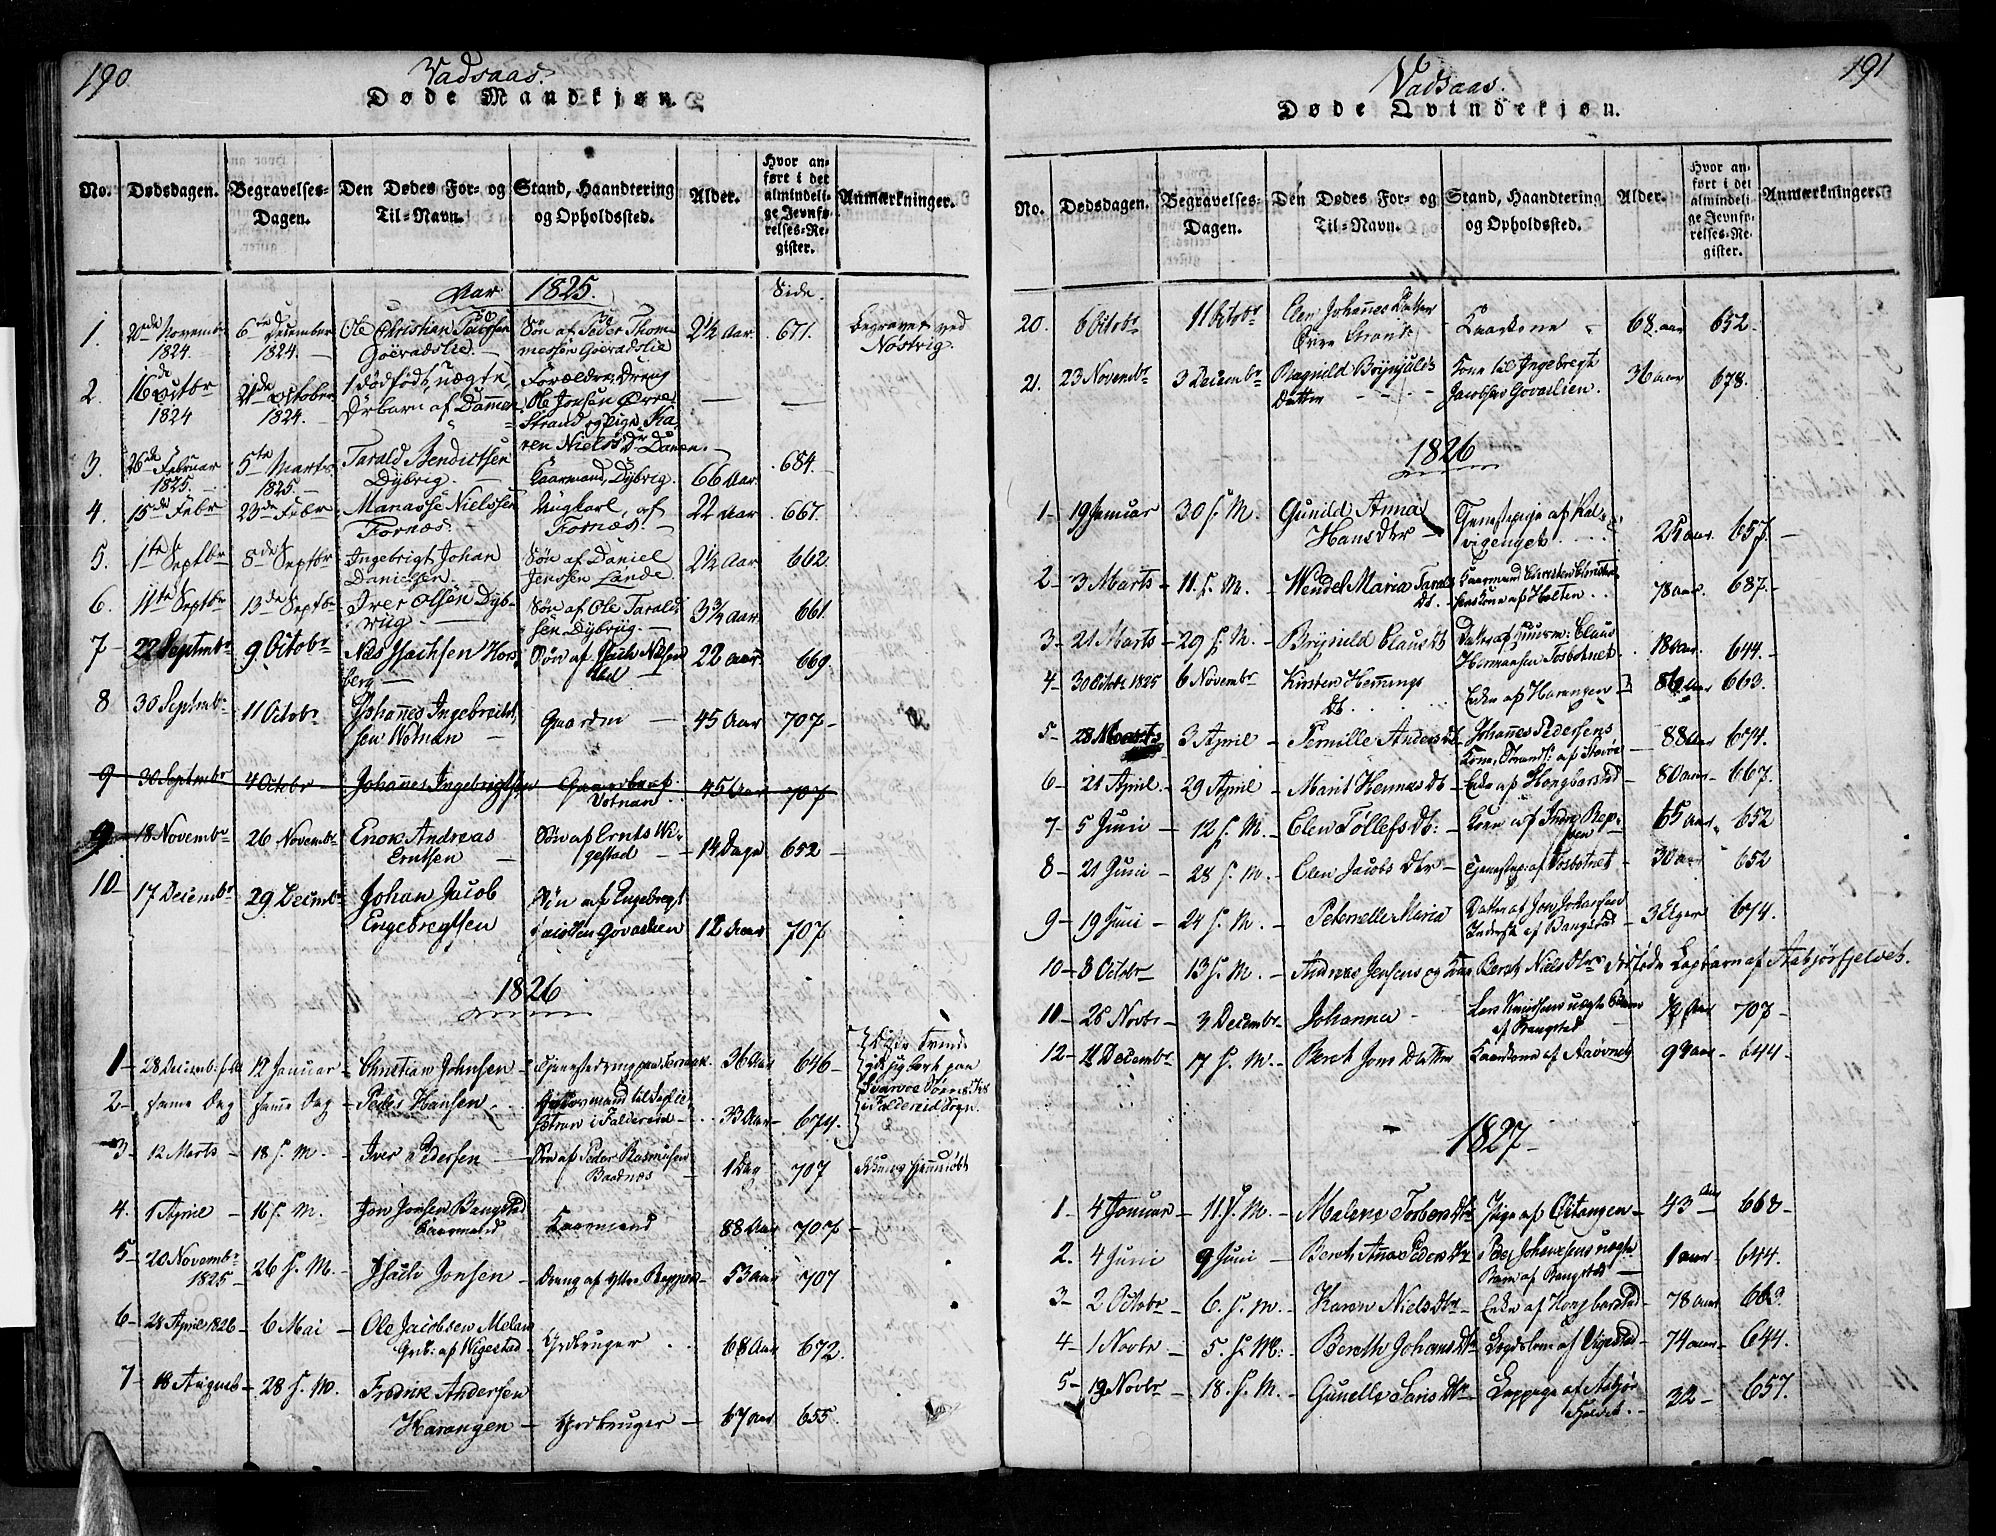 190.
Vadsaas.
Døde Mandkjøn.
No.
Dødsdagen.
Begravelses-Dagen.
Den Dødes For- og Til-Navn.
Stand, Haandtering og Opholdssted.
Alder.
Hvor anført i det almindelige Jevnførelses-Register.
Anmærkninger.
Aar 1825.
Side.
1. 2de Novembr 1824. 6te December 1824. Ole Christian Goëradslie. Søn af Peder Thomessen Goëradslie 2½ Aar. 671. Begravet ved Nøstvig.
2. 16de Octbr 1824 21de October 1824. 1 dødfødt, uægte, Forældre, Dreng Ole Jonsen Øvre Strand og Pige Karen Niels Dr
3. 26de Februar 1825. 5te Marts 1825. Tarald Bendictsen Dybvig. Gaarmand, Dybvig. 66 Aar. 684.
4. 15de Febr 23de Febr Manasse Nielssen Fornæs. Ungkarl, af Fornæs. 22 Aar 667.
5. 1te Septbr 8de Septbr Ingebrigt Johan Danielsen. Søn af Daniel Jenssen Lande. 2½ Aar 662.
6. 11te Septbr 13de Septbr Iver Olsen Dybvig Søn af Ole Taraldsen Dybvig. 3¾ Aar. 661.
7 22 Septembr 9 Octobr Nils Isachsen Horsberg Søn af Isach Nilsen 22 aar 669
8 30 Septembr 11 Octobr Johannes Ingebrichtsen Gaarden 45 Aar 707
9 30 Septembr 4 Octobr Johannes Ingebrigtsen 45 Aar 707
9 18 Novembr 26 Novembr Enok Andreas Erntsen Søn af Ernts Wigestad 14 Dage 652
10 17 Decembr 29 Decembr Johan Jacob Engebregtsen Søn af Engebregt Govaslien 12 Aar 707
1826
1 28 Decemb: 12 Januar Christian Johnsen Tjenestedreng paa 36 Aar 646
2 samme Dag samme Dag Peder Hansen 33 Aar 674.
3 12 Marts 18 s. M. Iver Pedersen Søn af Peder Rasmusen Baadnæs 1 Dag 707 hjemmedøbt
4. 1 April 16 s. M. Jon Jonsen Bangstad Gaarmand Gaarmand 88 Aar 707
5 20 Novembr 1825 26 s. M. Isach Jonsen Dreng af Ytre Reppen 53 Aar 707
6 28 April 1826 6 Mai Ole Jacobsen af Wigestad Jordbruger 68 Aar 672.
7 18 August 28 s. M. Fredrik Andersen Harangen Jordbruger 67 Aar 655.
191
Vadsaas.
Døde Qvindekjøn.
No.
Dødsdagen.
Begravelses-Dagen.
Den Dødes For- og Til-Navn.
Stand, Haandtering og Opholdssted.
Alder.
Hvor anført i det almindelige Jevnførelses-Register.
Anmærkninger.
20. 6 Octobr 11 Octobr Elen Johannes Datter Øvre Strand Gaarkone 68 aar 652.
21. 23 Novembr 3 Decembr Ragnild Brynjuls Datter Kone til Ingebregt Jacobsen Govaslien. 36 aar 678.
1826
1 19 Januar 30 s. M. Gunild Anna Hans Dtr Tjenestepige af Kalvigenget 25 aar 657.
2 3 Marts 11 s. M. Wendel Maria Taralds Dt. Gaarmand Christen kone af Holten 78 aar 687.
3 21 Marts 29 s. M. Brynild Claus Dt Datter af Huusm: Claus Hermansen Tosbotnet. 18 aar. 644.
4 30 Octbr 1825 6 Novembr Kirsten Hemmings Dt. Enke af Harangen 86 aar 663.
5 28 Marts 3 April Pernille Anders Dt Johannes Pedersens Kone, 88 aar 674.
6 21 April 29 April Marit Hemmas Dt Enke af Hongbarstad 80 aar 667.
7 5 Juni 12 s. M. Elen Tøllefs Dt: Kone af Indre Reppen 65 aar 652
8 21 Juni 28 s. M. Elen Jacobs Dtr Tjenestepige af Tosbotnet 30 aar 652
9 19 Juni 24 s. M. Peternelle Maria Datter af Jon Johansen Inderst af Bangstad 3 Uger 674.
10 8 Octobr 13 s. M. Andreas Jensens og Kone Bereth Niels Dtrs dødfødte Lapbarn af Aabjørfjelvet.
11 26 Novbr 3 Decembr Johanna Lars Knudsens uægte Barn af Bangstad ½ Aar 707
12 11 Decembr 17 s. M. Bereth Jons Datter Gaarkone af Aavnes 9 aar 644
1827
1 4 Januar 11 s. M. Malene Torbers Dtr Pige af 43 Aar 668
2. 4 Juni 9 Juni Bereth Anna Peders Dtr Peder Johansens uægte Barn af Bangstad 1 aar 644.
3 2 Octobr 6. s. M. Karen Niels Dtr Enke af Hongbarstad 78 aar 663.
4 1 Novbr 5. s. M: Bereth Johans Dtr Legdslem af Vigestad 74 aar 644.
5 13 Novbr 18. s. M. Gunelle Lars Dtr Lappige af Aabjør Fjeldet. 32 657.